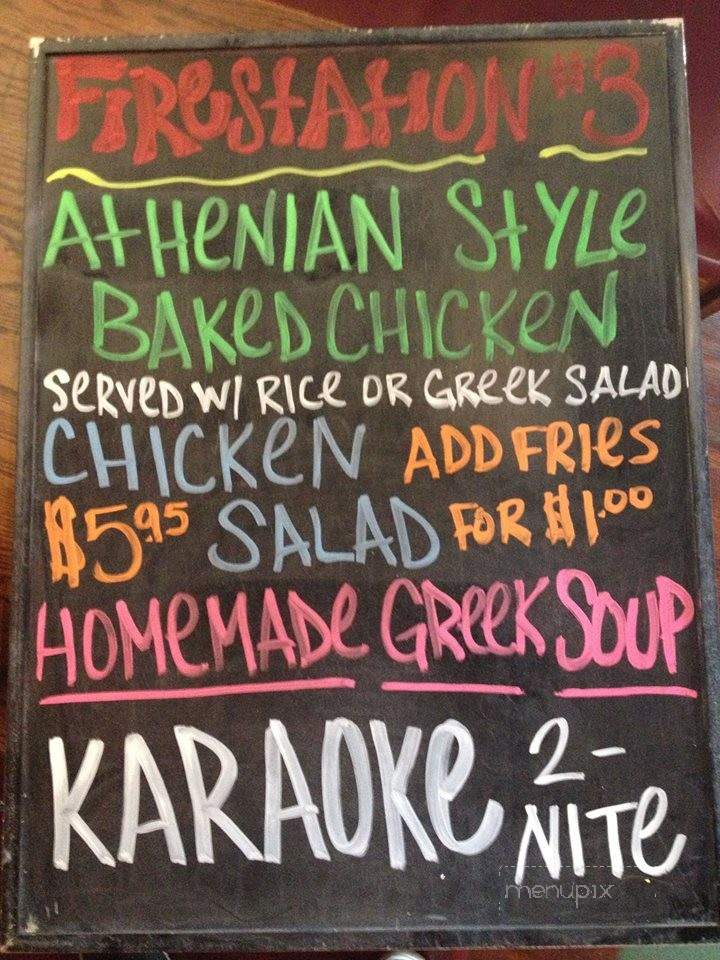 FiReStAtiON #3
AtHeNIAN StYLe
BAKeD CHICKeN
SeRVeD W/ RICe OR GReeK SALAD
CHICKeN ADD FRIeS
$5.95 SALAD FOR $1.00
HOMeMADe GReeK SOUP
KARAOKe 2-
NITe
menupix